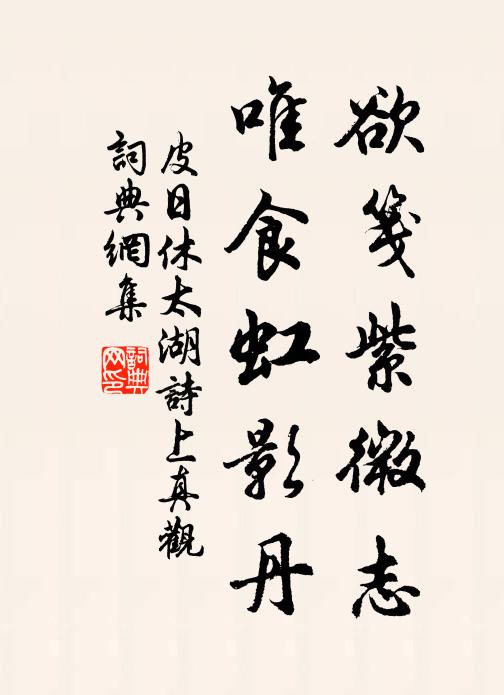 欲箋紫微志
唯食虹影丹
皮日休太湖詩上真觀
詞典網集
詞典网印